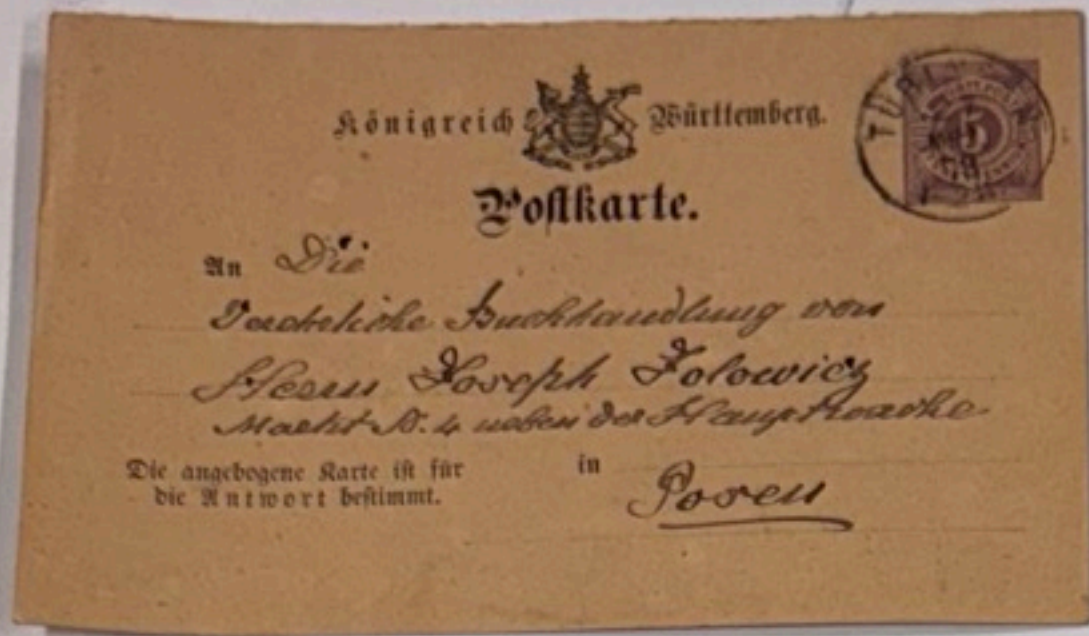 Königreich Württemberg.
Postkarte.
An Die
Buchhandlung von
Herrn Joseph Jolowicz
Markt N. 4 neben der Hauptwache
Die angebogene Karte ist für
die Antwort bestimmt.
in
Posen
TÜBINGEN
5